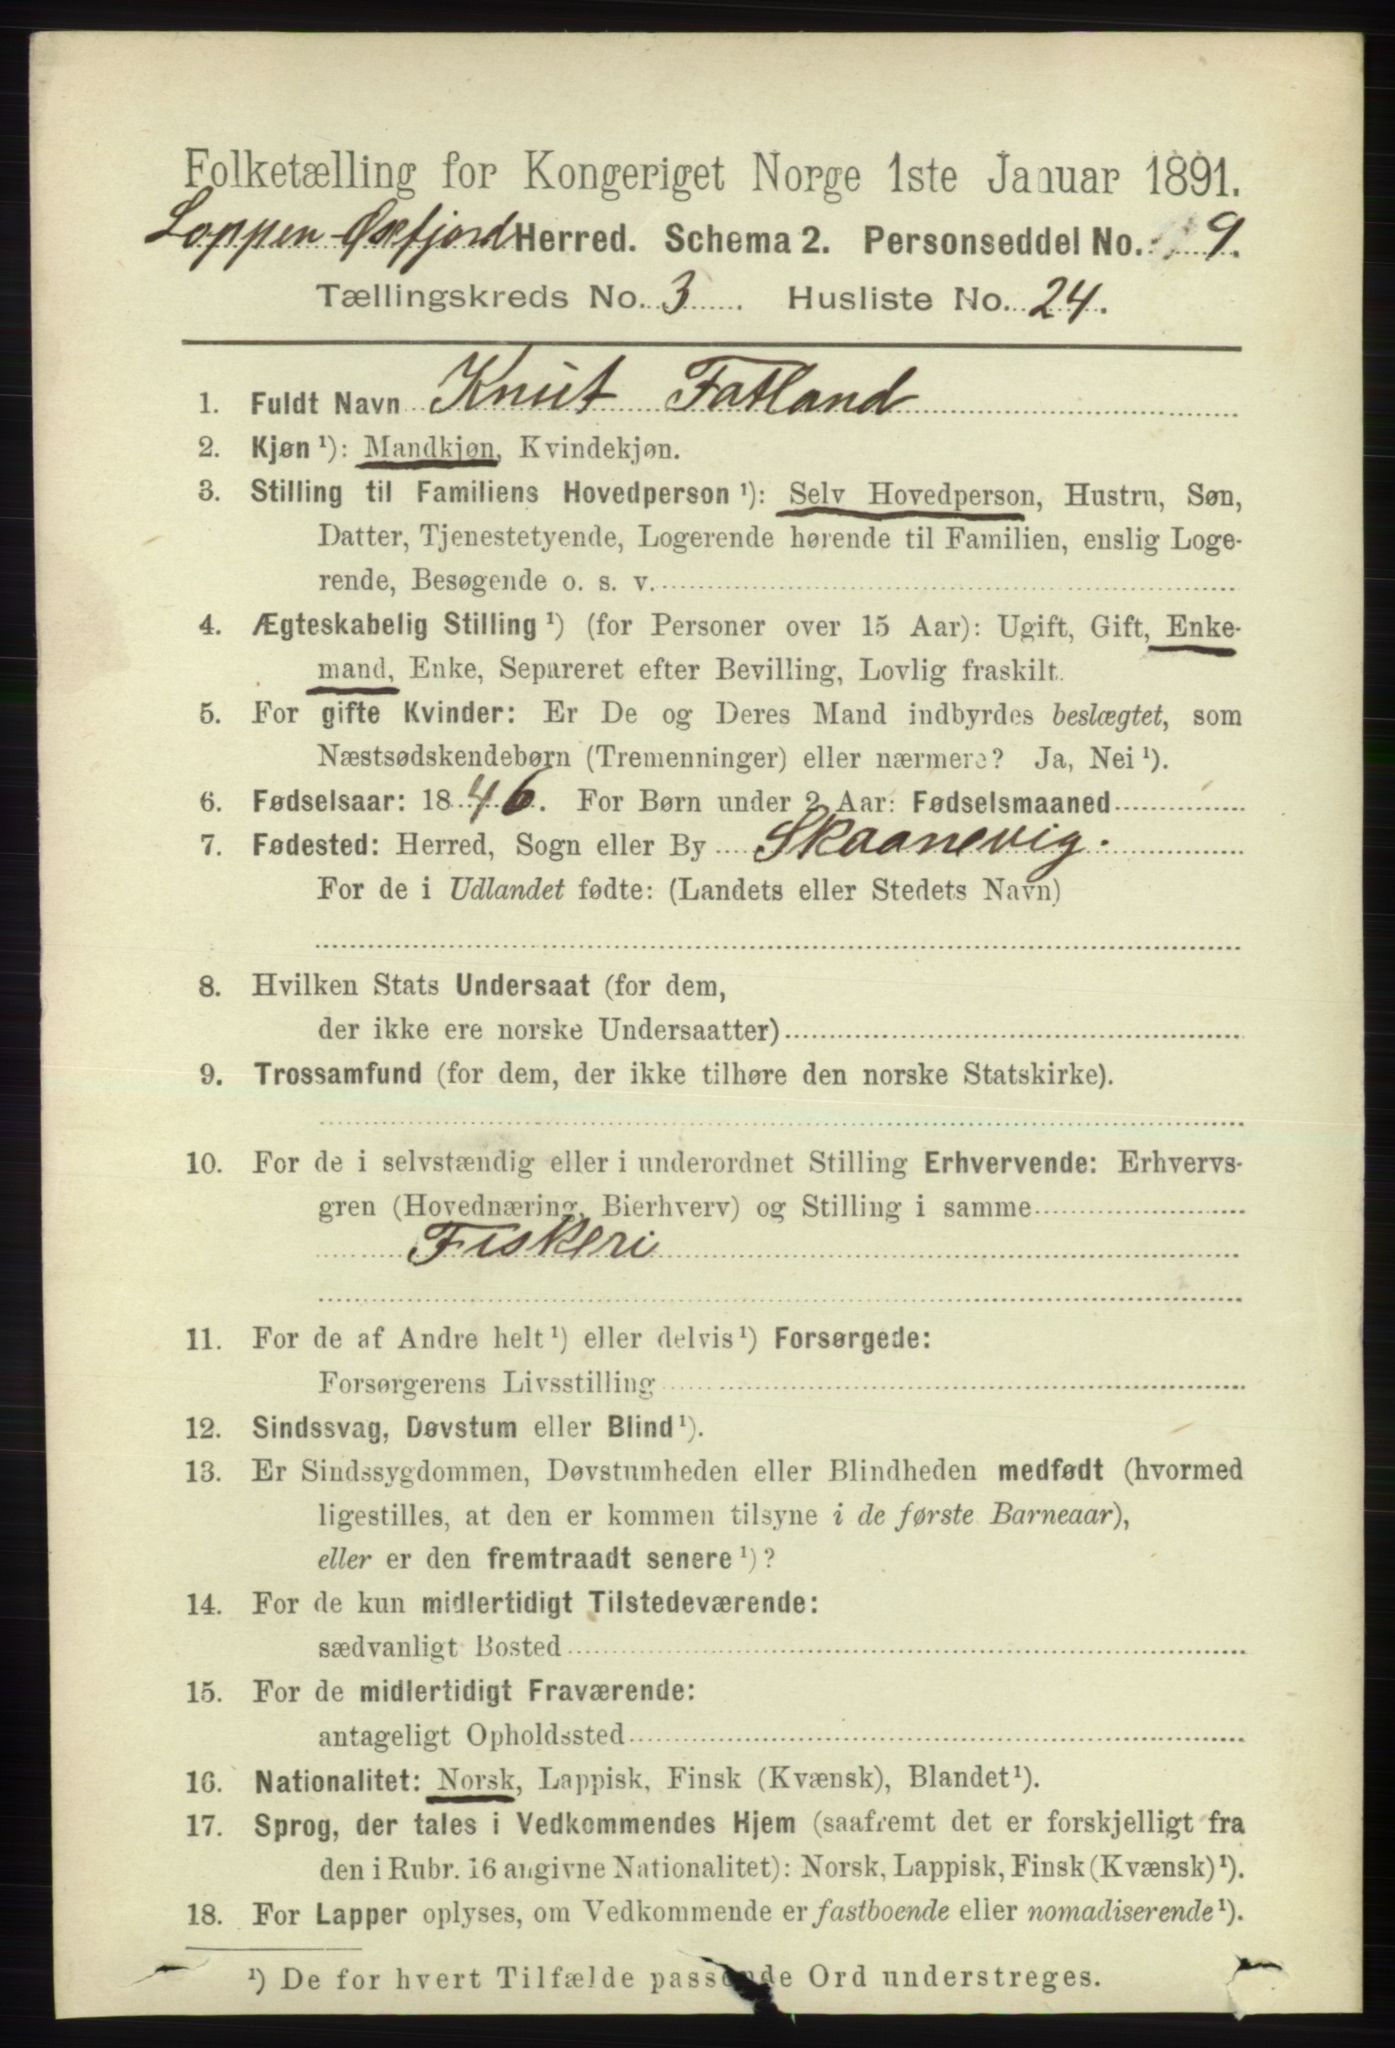 Folketælling for Kongeriget Norge 1ste Januar 1891.
Loppen-Øxfjord Herred. Schema 2. Personseddel No. 9.
Tællingskreds No. 3. Husliste No. 24.
1. Fuldt Navn Knut Fatland
2. Kjøn ¹): Mandkjøn, Kvindekjøn.
3. Stilling til Familiens Hovedperson ¹): Selv Hovedperson, Hustru, Søn,
Datter, Tjenestetyende, Logerende hørende til Familien, enslig Loge-
rende, Besøgende o. s. v.
4. Ægteskabelig Stilling ¹) (for Personer over 15 Aar): Ugift, Gift, Enke-
mand, Enke, Separeret efter Bevilling, Lovlig fraskilt.
5. For gifte Kvinder: Er De og Deres Mand indbyrdes beslægtet, som
Næstsødskendebørn (Tremenninger) eller nærmere? Ja, Nei ¹).
6. Fødselsaar: 1846. For Børn under 2 Aar: Fødselsmaaned
7. Fødested: Herred, Sogn eller By Skaanevig.
For de i Udlandet fødte: (Landets eller Stedets Navn)
8. Hvilken Stats Undersaat (for dem,
der ikke ere norske Undersaatter)
9. Trossamfund (for dem, der ikke tilhøre den norske Statskirke).
10. For de i selvstændig eller i underordnet Stilling Erhvervende: Erhvervs-
gren (Hovednæring, Bierhverv) og Stilling i samme
Fiskeri
11. For de af Andre helt ¹) eller delvis ¹) Forsørgede:
Forsørgerens Livsstilling
12. Sindssvag, Døvstum eller Blind ¹).
13. Er Sindssygdommen, Døvstumheden eller Blindheden medfødt (hvormed
ligestilles, at den er kommen tilsyne i de første Barneaar),
eller er den fremtraadt senere ¹)?
14. For de kun midlertidigt Tilstedeværende:
sædvanligt Bosted
15. For de midlertidigt Fraværende:
antageligt Opholdssted
16. Nationalitet: Norsk, Lappisk, Finsk (Kvænsk), Blandet ¹).
17. Sprog, der tales i Vedkommendes Hjem (saafremt det er forskjelligt fra
den i Rubr. 16 angivne Nationalitet): Norsk, Lappisk, Finsk (Kvænsk) ¹).
18. For Lapper oplyses, om Vedkommende er fastboende eller nomadiserende ¹).
¹) De for hvert Tilfælde passende Ord understreges.